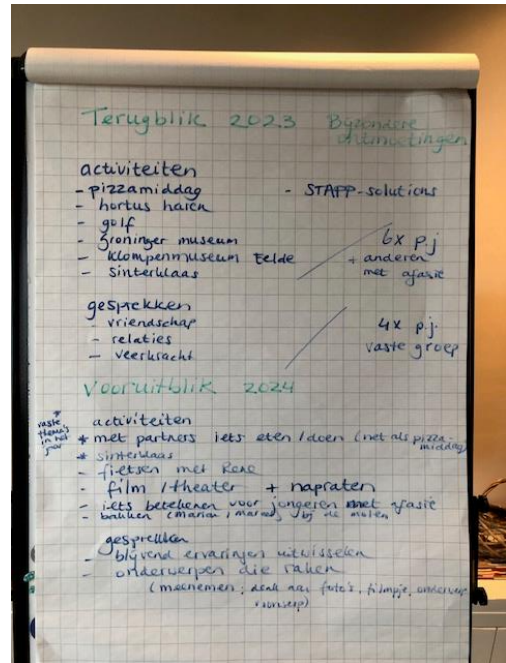 Terugblik 2023 Byzondere
ontmoetingen
activiteiten
- pizzamiddag - STAPP-solutions
- hortus haren
- golf
- Groninger museum 6x p.j
- klompenmuseum Eelde + anderen
- sinterklaas met afasie
gesprekken
- vriendschap 4x p.j.
- relaties vaste groep
- veerkracht
Vooruitblik 2024
* vaste thema's in het jaar
activiteiten
* met partners iets eten / doen (net als pizza-
middag)
* sinterklaas
- fietsen met Rene
- film / theater + napraten
- iets betekenen voor jongeren met afasie
- bakken (marian, ) bij de molen
gesprekken
- blijvend ervaringen uitwisselen
- onderwerpen die raken
(meenemen; denk aan foto's, filmpje, onderwerp
)